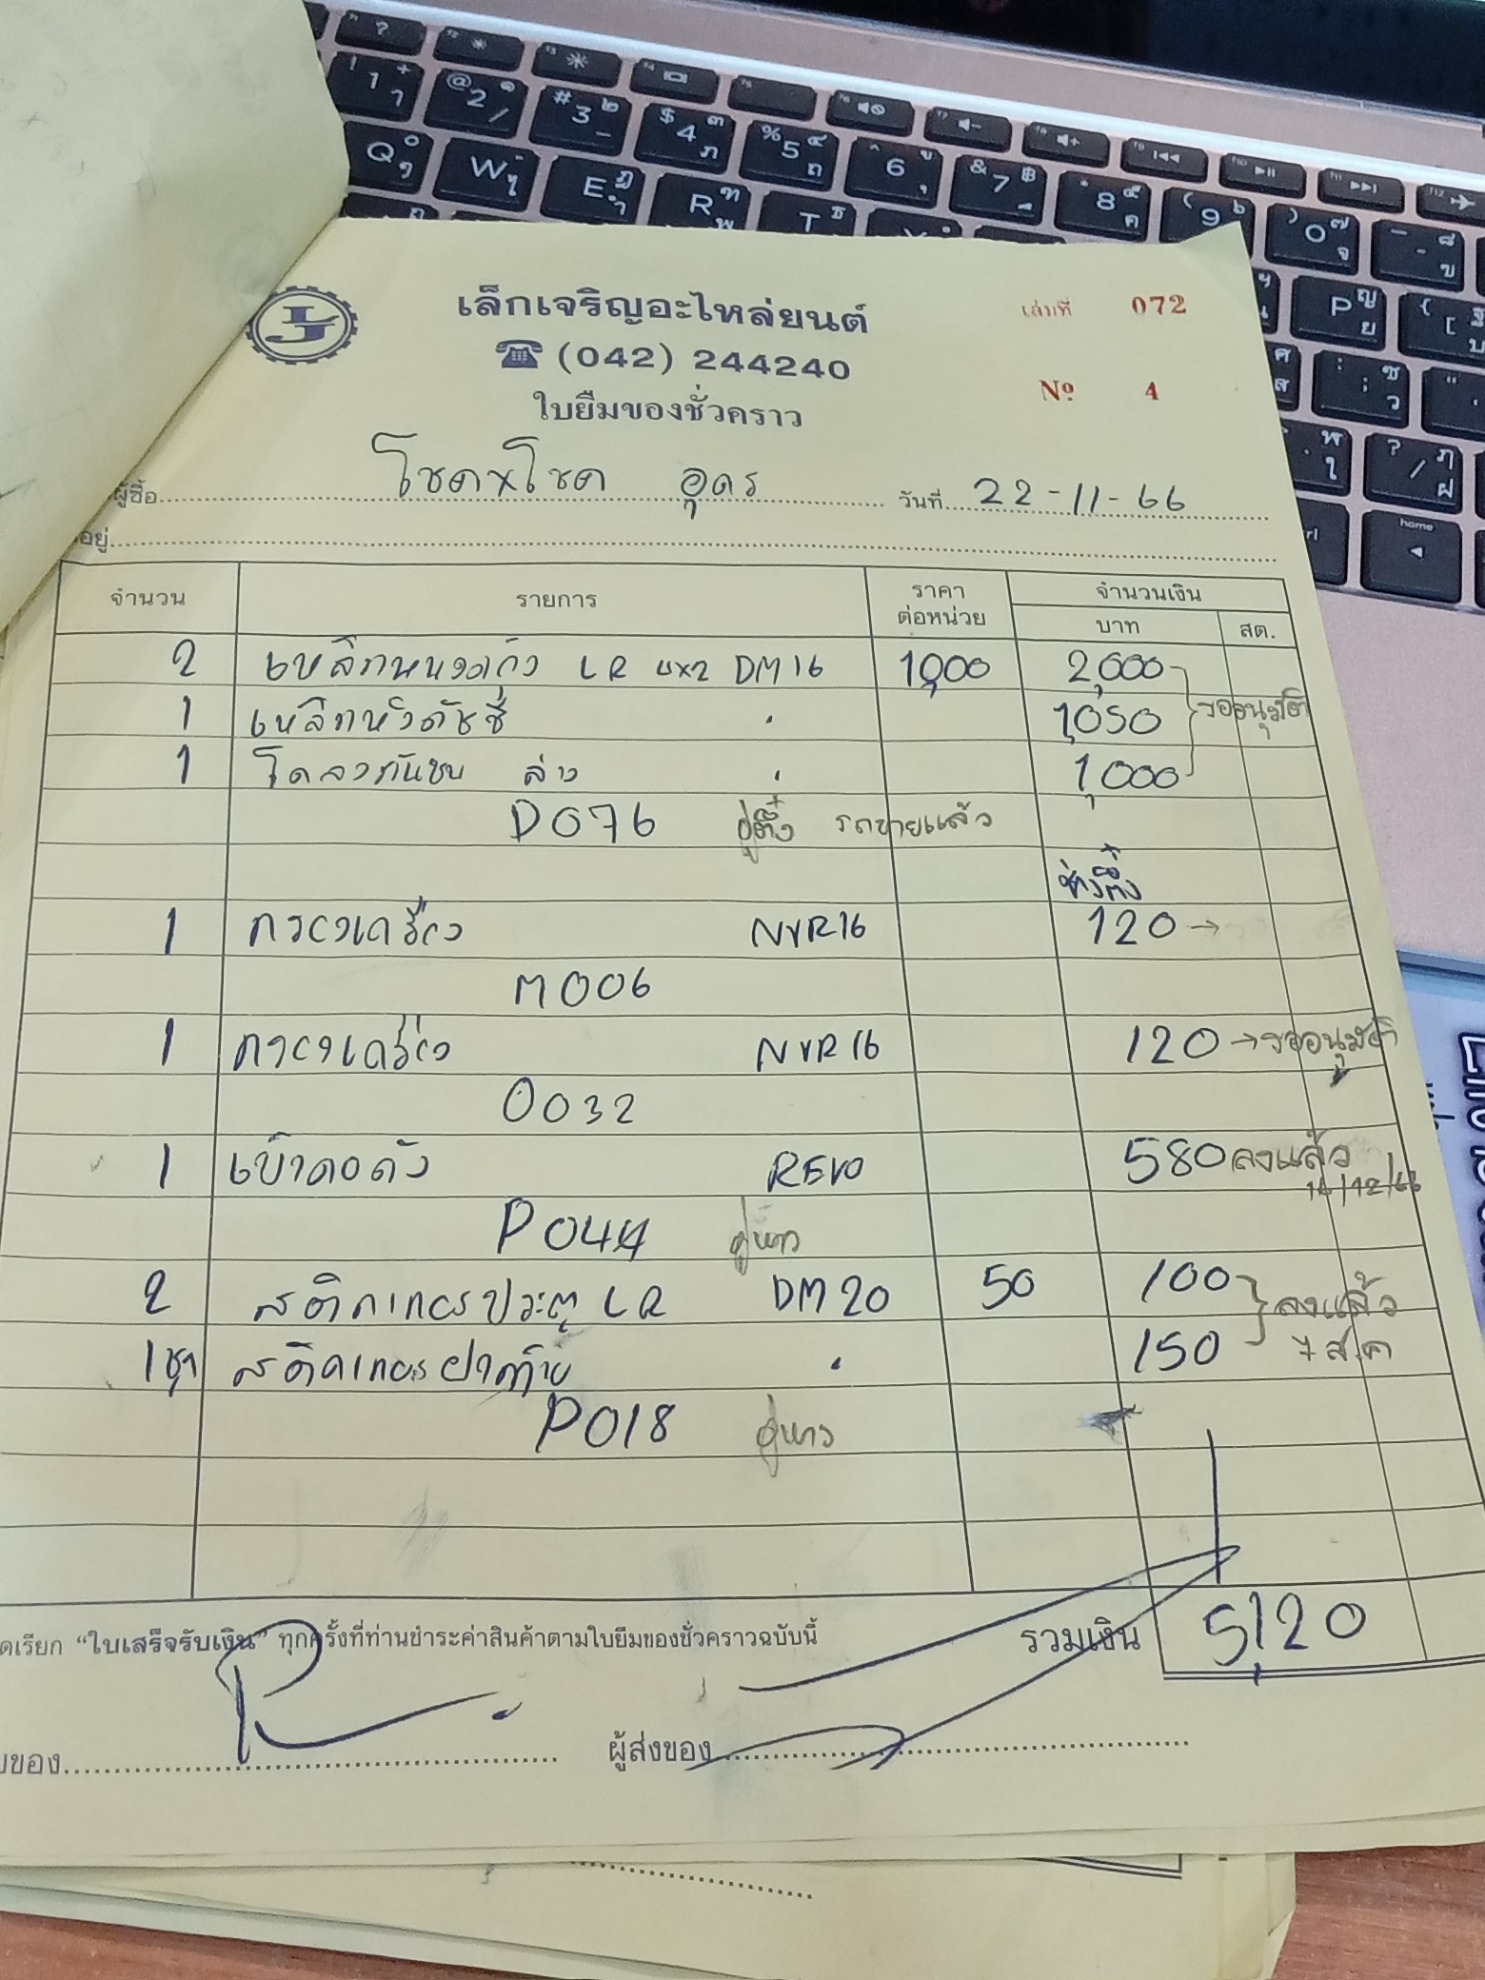 เล็กเจริญอะไหล่ยนต์
เล่มที่ 072
☎ (042) 244240
Nº 4
ใบยืมของชั่วคราว
ผู้ซื้อ โชคxโชค อุดร วันที่ 22-11-66
อยู่
จำนวน รายการ ราคาต่อหน่วย จำนวนเงิน
บาท สต.
2 LR 4x2 DM16 1,000 2,000
1 1,050 รออนุมัติ
1 ล่าง 1,000
D076 อู่ตึ๋ง รถขายแล้ว
ช่างตึ๋ง
1 กรองเครื่อง NVR16 120 →
M006
1 กรองเครื่อง NVR16 120 → รออนุมัติ
0032
1 REVO 580 ลงแล้ว
16/12/66
P044
2 สติกเกอร์ประตู LR DM20 50 100 ลงแล้ว
1 ชุด สติกเกอร์ฝาท้าย 150 7 ส.ค
P018
ดเรียก “ใบเสร็จรับเงิน” ทุกครั้งที่ท่านชำระค่าสินค้าตามใบยืมของชั่วคราวฉบับนี้ รวมเงิน 5,120
บของ ผู้ส่งของ